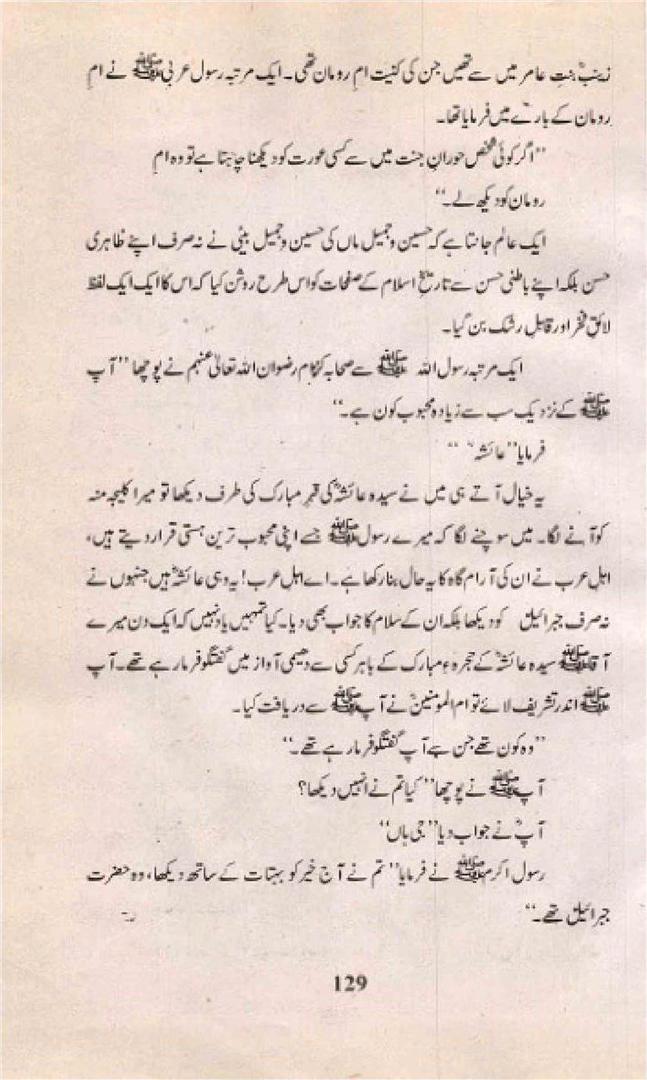 زینبؓ بنتِ عامر میں سے تھیں جن کی کنیت امِ رومان تھی۔ ایک مرتبہ رسول عربی ﷺ نے امِ
رومان کے بارے میں فرمایا تھا۔
’’اگر کوئی شخص حورانِ جنت میں سے کسی عورت کو دیکھنا چاہتا ہے تو وہ امِ
رومان کو دیکھ لے۔‘‘
ایک عالم جانتا ہے کہ حسین و جمیل ماں کی حسین و جمیل بیٹی نے نہ صرف اپنے ظاہری
حسن بلکہ اپنے باطنی حسن سے تاریخِ اسلام کے صفحات کو اس طرح روشن کیا کہ اس کا ایک ایک لفظ
لائقِ فخر اور قابلِ رشک بن گیا۔
ایک مرتبہ رسول اللہ ﷺ سے صحابہ کرام رضوان اللہ تعالیٰ عنہم نے پوچھا ’’آپ
ﷺ کے نزدیک سب سے زیادہ محبوب کون ہے۔‘‘
فرمایا ’’عائشہؓ‘‘
یہ خیال آتے ہی میں نے سیدہ عائشہؓ کی قبرِ مبارک کی طرف دیکھا تو میرا کلیجہ منہ
کو آنے لگا۔ میں سوچنے لگا کہ میرے رسول ﷺ جسے اپنی محبوب ترین ہستی قرار دیتے ہیں،
اہلِ عرب نے ان کی آرام گاہ کا یہ حال بنا رکھا ہے۔ اے اہلِ عرب! یہ وہی عائشہؓ ہیں جنہوں نے
نہ صرف جبرائیل کو دیکھا بلکہ ان کے سلام کا جواب بھی دیا۔ کیا تمہیں یاد نہیں کہ ایک دن میرے
آقا ﷺ سیدہ عائشہؓ کے حجرہء مبارک کے باہر کسی سے دھیمی آواز میں گفتگو فرما رہے تھے۔ آپ
ﷺ اندر تشریف لائے تو ام المومنینؓ نے آپ ﷺ سے دریافت کیا۔
’’وہ کون تھے جن سے آپ گفتگو فرما رہے تھے۔‘‘
آپ ﷺ نے پوچھا ’’کیا تم نے انہیں دیکھا؟
آپؓ نے جواب دیا ’’جی ہاں‘‘
رسول اکرم ﷺ نے فرمایا ’’تم نے آج خیر کو بہتات کے ساتھ دیکھا، وہ حضرت
جبرائیل تھے۔‘‘
129